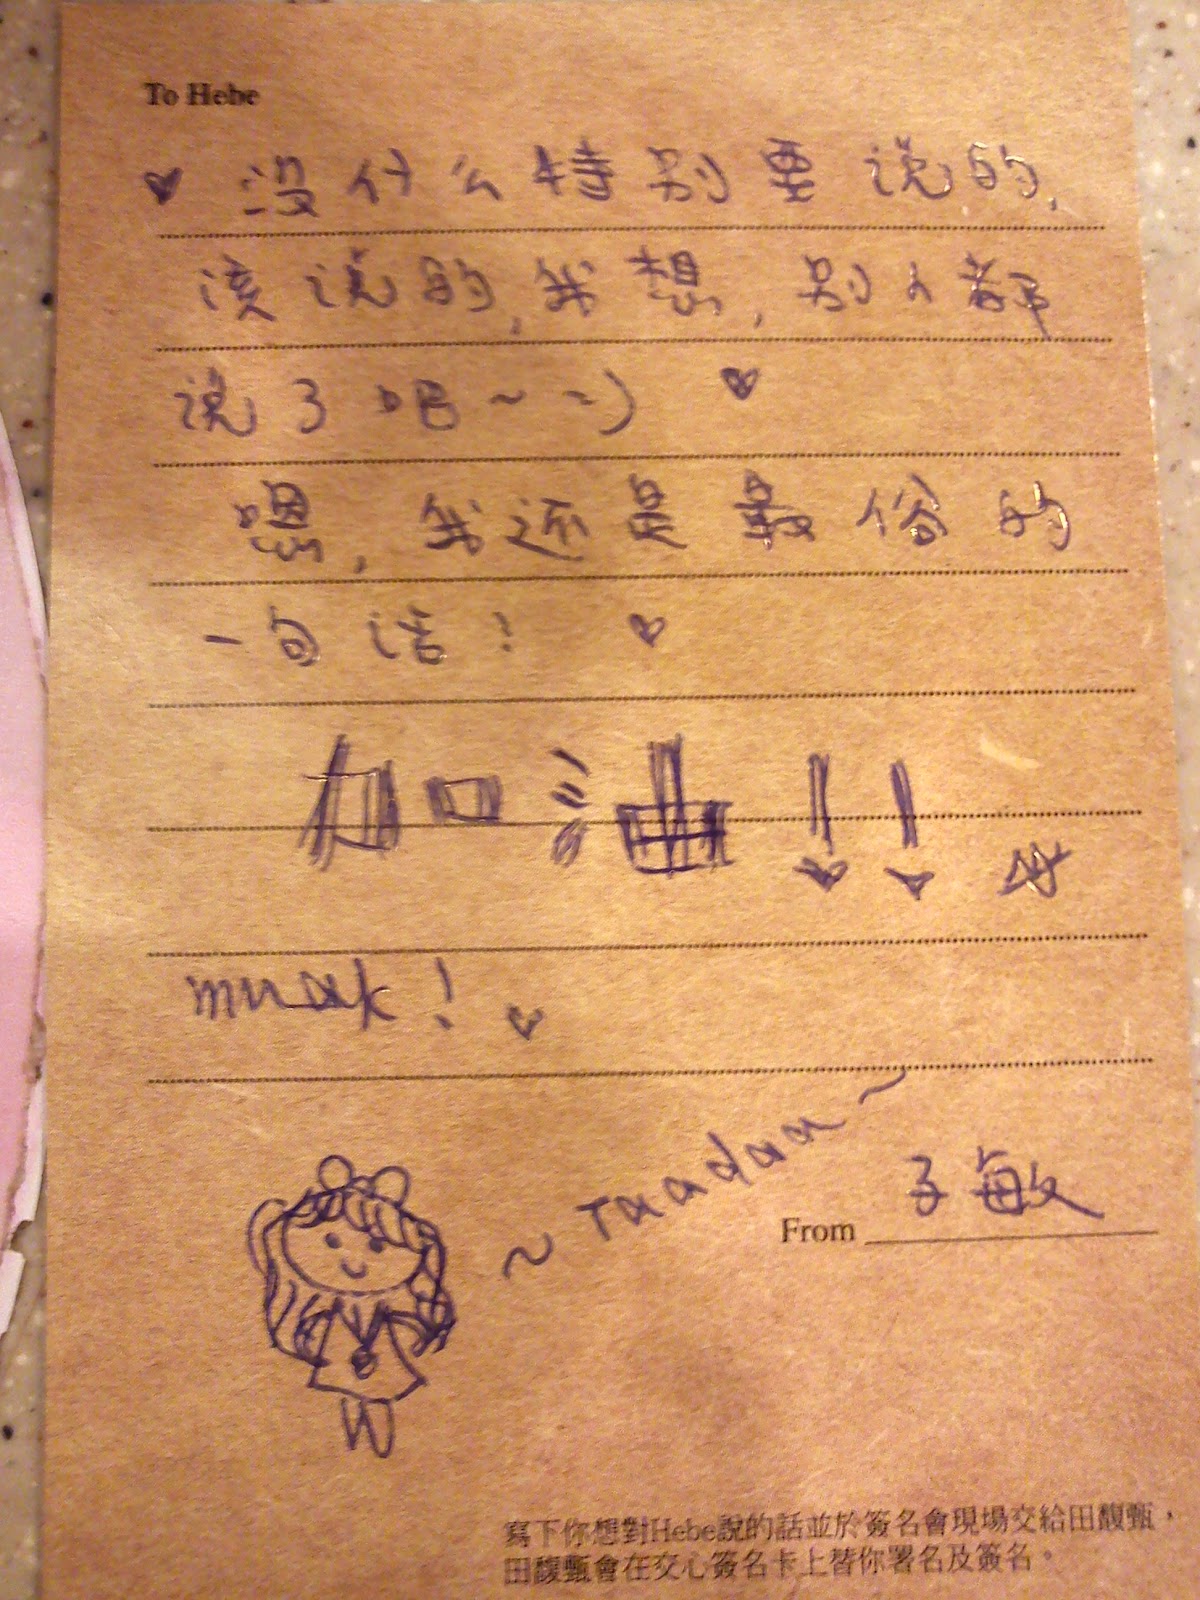 To Hebe
♥ 没什么特别要说的,
该说的,我想,别人都
说了吧~ =) ♥
嗯,我还是最俗的
一句话! ♥
加油!!
muak! ♥
~ Taadaa ~
From 子敏
寫下你想對Hebe說的話並於簽名會現場交給田馥甄,
田馥甄會在交心簽名卡上替你署名及簽名。